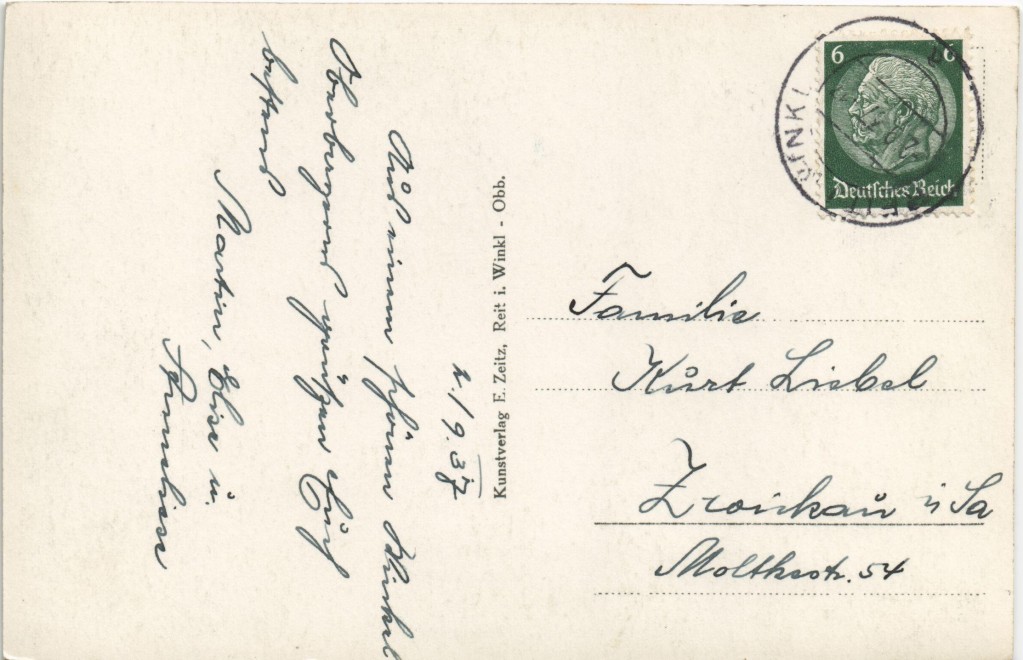 2./9. 37
Aus einem schönen Winkel
Oberbayerns grüßen Euch
bestens
Martin, Else u.
Anneliese
Kunstverlag E. Zeitz, Reit i. Winkl - Obb.
6 6
Deutsches Reich
REIT WINKL
Familie
Kurt Liebel
Zwickau i/Sa
Moltkestr. 54